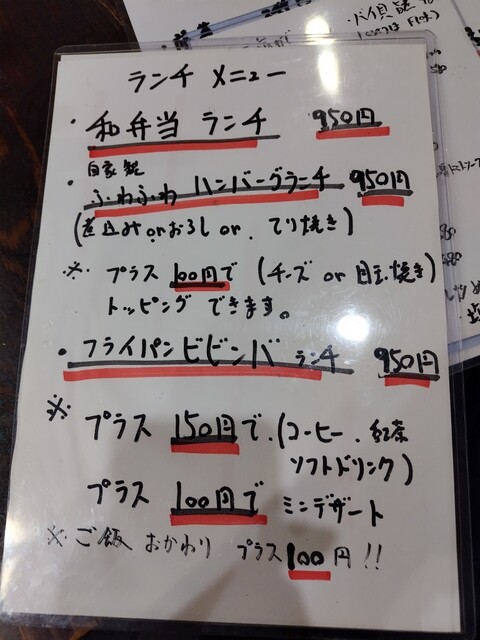 ランチ メニュー
・和弁当 ランチ 950円
自家製
・ふわふわ ハンバーグランチ 950円
(煮込み or おろし or てり焼き)
※ プラス 100円で (チーズ or 目玉焼き)
トッピング できます。
・フライパンビビンバ ランチ 950円
※ プラス 150円で、(コーヒー、紅茶
ソフトドリンク)
プラス 100円で ミニデザート
※ご飯 おかわり プラス100円!!